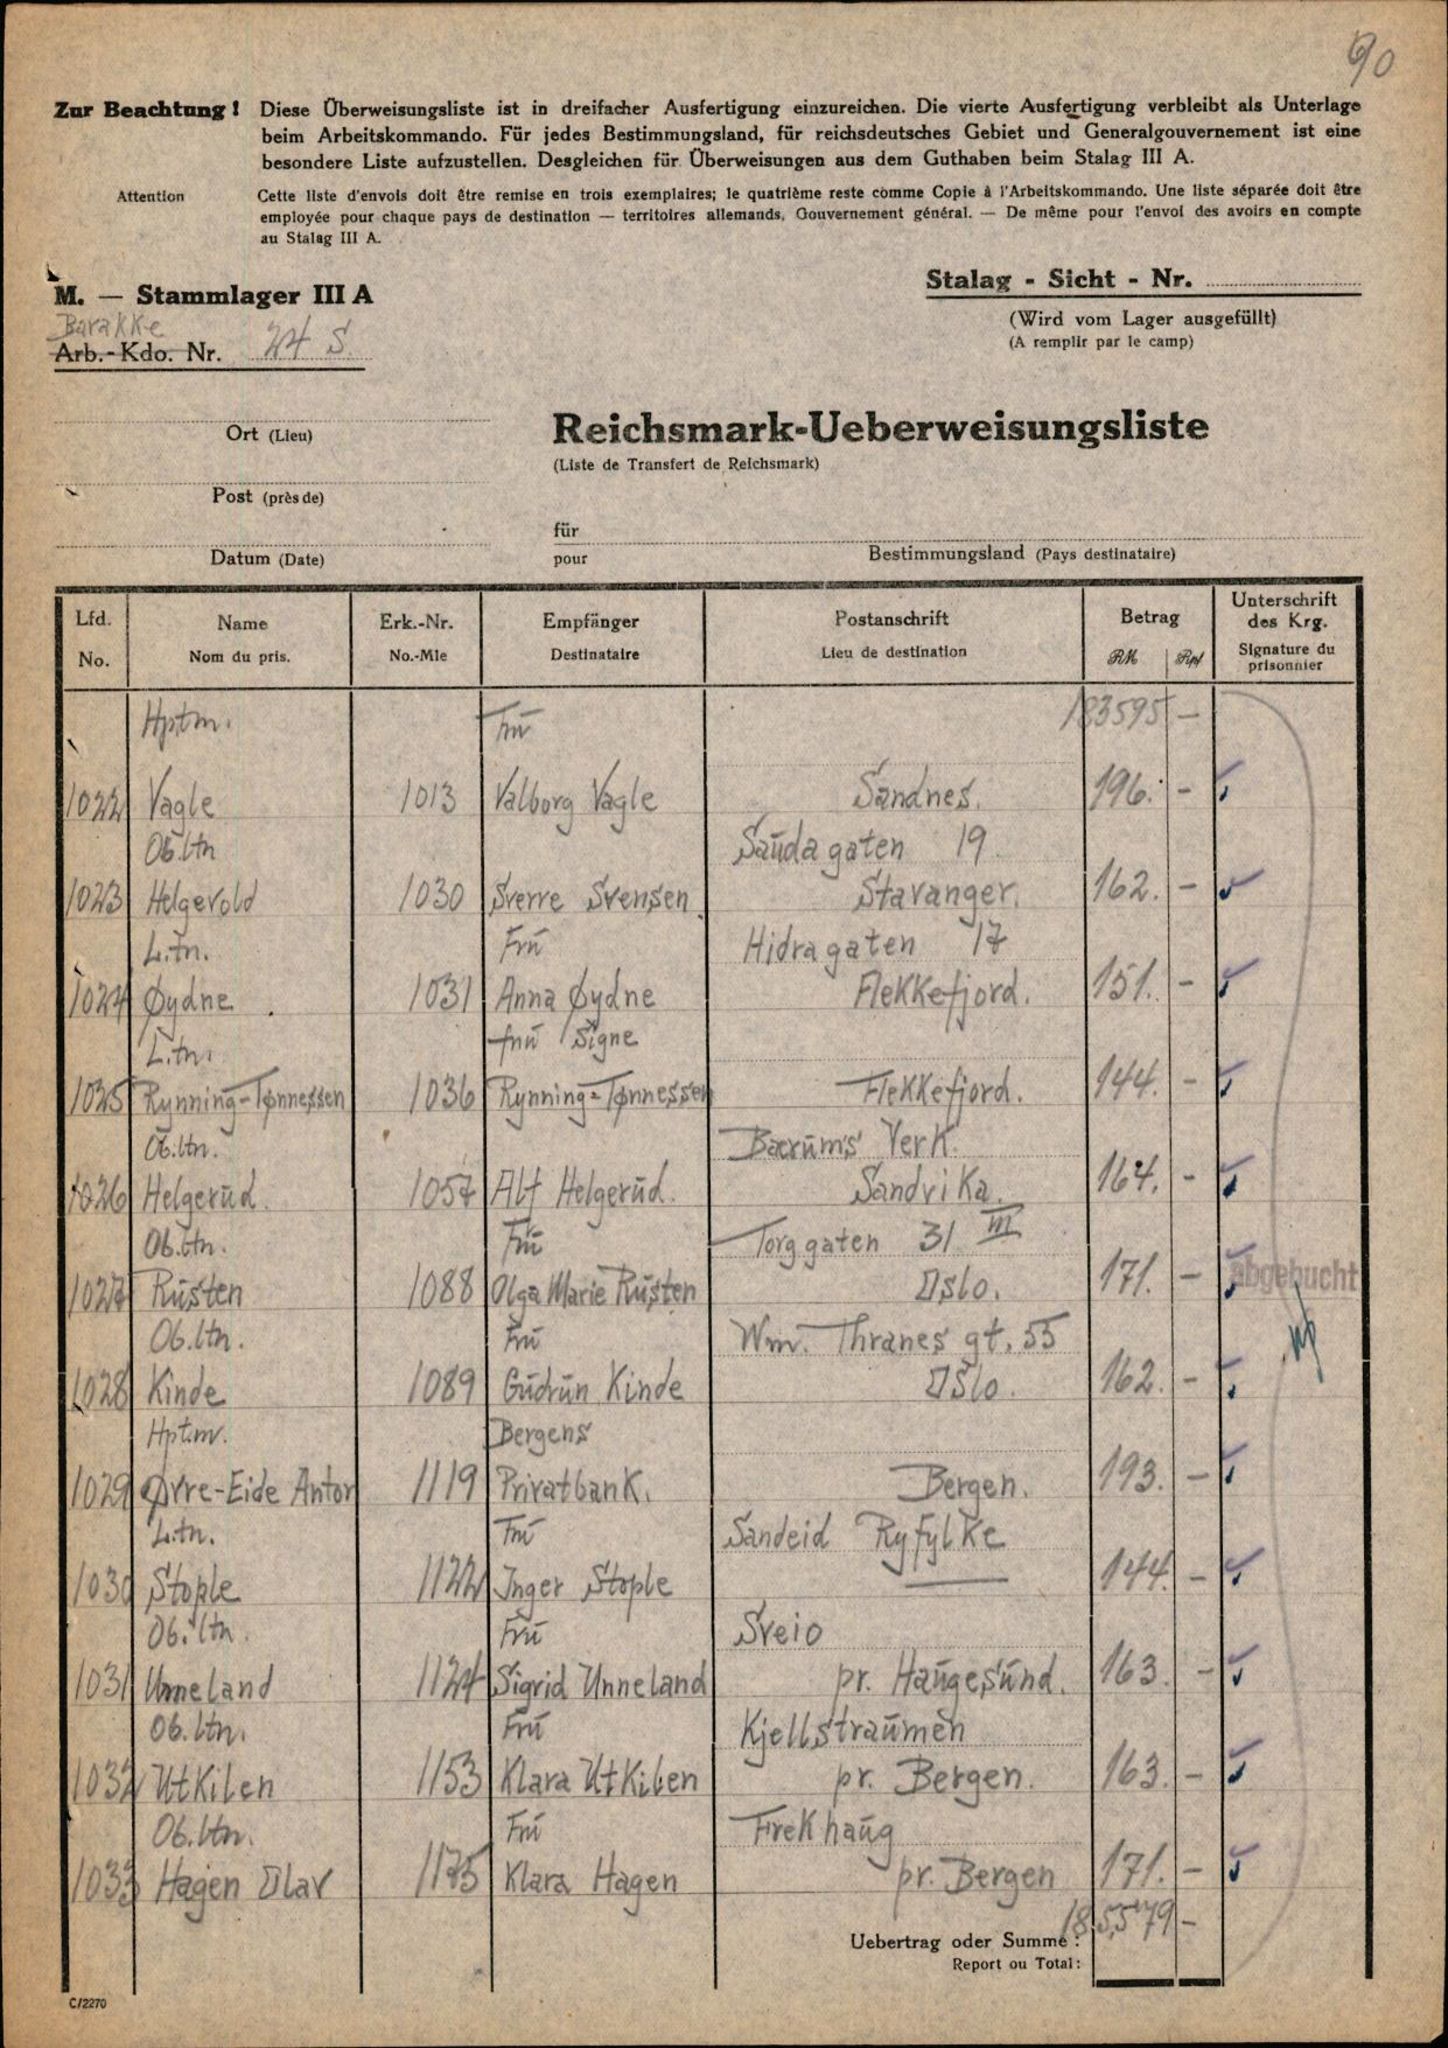 90
Zur Beachtung! Diese Überweisungsliste ist in dreifacher Ausfertigung einzureichen. Die vierte Ausfertigung verbleibt als Unterlage
beim Arbeitskommando. Für jedes Bestimmungsland, für reichsdeutsches Gebiet und Generalgouvernement ist eine
besondere Liste aufzustellen. Desgleichen für Überweisungen aus dem Guthaben beim Stalag III A.
Attention Cette liste d'envois doit être remise en trois exemplaires; le quatrième reste comme Copie à l'Arbeitskommando. Une liste séparée doit être
employée pour chaque pays de destination — territoires allemands, Gouvernement général. — De même pour l'envoi des avoirs en compte
au Stalag III A.
M. — Stammlager III A
Stalag - Sicht - Nr.
(Wird vom Lager ausgefüllt)
(A remplir par le camp)
Barakke
Arb.-Kdo. Nr. 24 S.
Ort (Lieu)
Reichsmark-Ueberweisungsliste
(Liste de Transfert de Reichsmark)
Post (près de)
für
pour
Bestimmungsland (Pays destinataire)
Datum (Date)
Lfd. Name Erk.-Nr. Empfänger Postanschrift Betrag Unterschrift des Krg.
No. Nom du pris. No.-Mle Destinataire Lieu de destination RM Rpf Signature du prisonnier
Hptm. Frū 183595 -
1022 Vagle 1013 Valborg Vagle Sandnes. 196. -
Ob.ltn Saūdagaten 19
1023 Helgevold 1030 Sverre Svensen. Stavanger. 162. -
L.tn. Frū Hidragaten 17
1024 Øydne. 1031 Anna Øydne Flekkefjord. 151. -
L.tn. frū Signe
1025 Rynning-Tønnessen 1036 Rynning-Tønnessen Flekkefjord. 144. -
Ob.ltn. Bærūms Verk.
1026 Helgerūd. 1057 Alf Helgerūd. Sandvika. 164. -
Ob.ltn. Frū Torggaten 31 III
1027 Rūsten 1088 Olga Marie Rūsten Oslo. 171. - abgebucht
Ob.ltn. Frū Wm. Thranes gt. 55
1028 Kinde 1089 Gūdrūn Kinde Oslo. 162. -
Hptm. Bergens
1029 Øvre-Eide Anton 1119 Privatbank. Bergen. 193. -
L.tn. Frū Sandeid Ryfylke
1030 Stople 1122 Inger Stople 144. -
Ob.ltn. Frū Sveio
1031 Unneland 1124 Sigrid Unneland pr. Haūgesūnd. 163. -
Ob.ltn. Frū Kjellstraūmen
1032 Utkilen 1153 Klara Utkilen pr. Bergen. 163. -
Ob.ltn. Frū Frekhaūg
1033 Hagen Olav 1175 Klara Hagen pr. Bergen 171. -
Uebertrag oder Summe: 185,579 -
Report ou Total:
C/2270